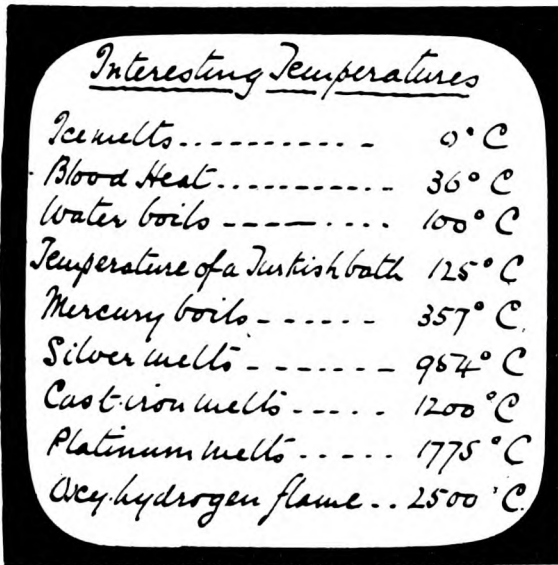 Interesting Temperatures
Ice melts........... 0° C
Blood Heat........... 36° C
Water boils ---—.... 100° C
Temperature of a Turkish bath 125° C
Mercury boils------ 357° C.
Silver melts------- 954° C
Cast-iron melts----- 1200° C
Platinum melts----- 1775° C
Oxy-hydrogen flame.. 2500° C.